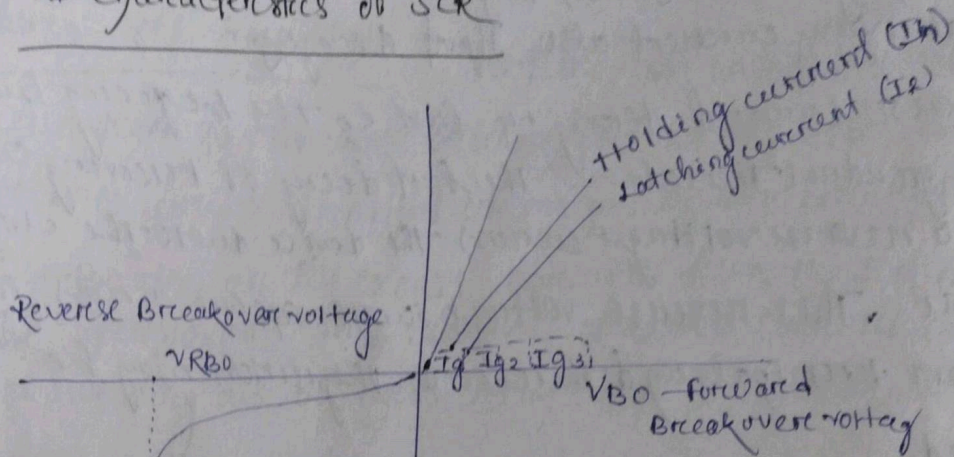 Characteristics of SCR
Holding current (Ih)
Latching current (I2)
Reverse Breakover voltage
VRBO
Ig Ig2 Ig3
VBO - forward
Breakover voltag